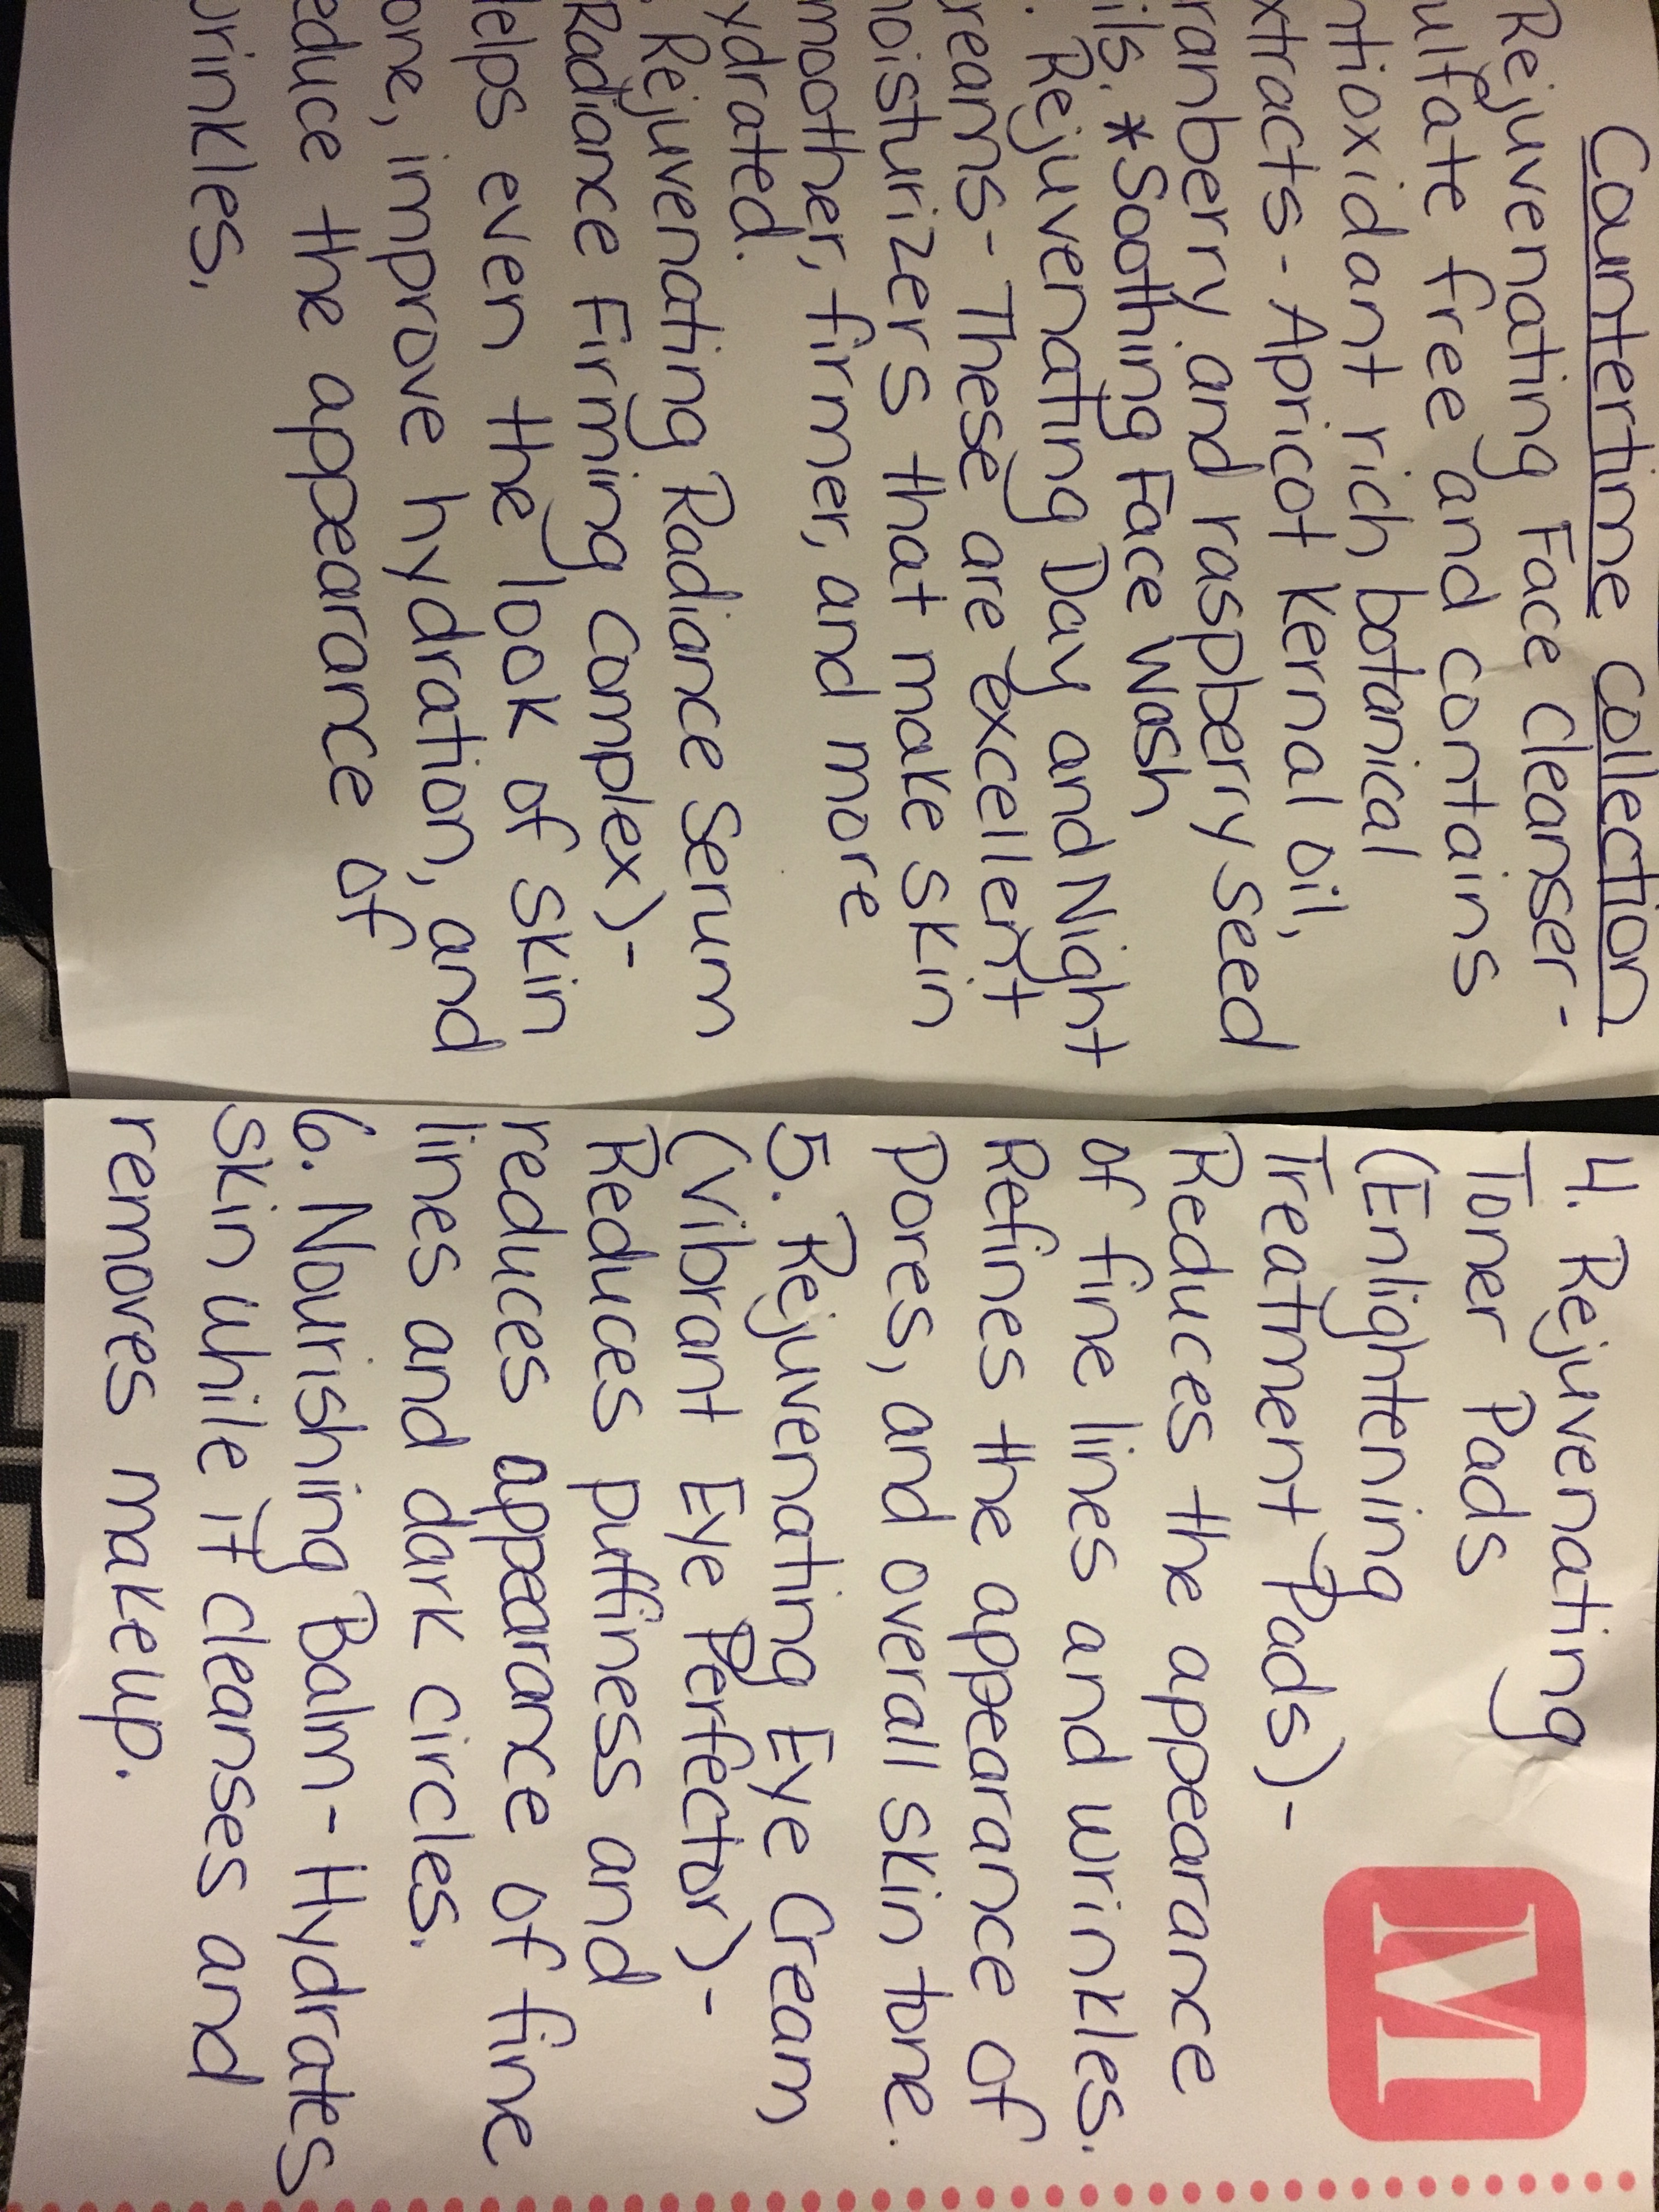 Countertime Collection
Rejuvenating Face Cleanser-
ulfate free and contains
ntioxidant rich botanical
xtracts - Apricot Kernal Oil,
ranberry and raspberry seed
ils. *Soothing Face Wash
. Rejuvenating Day and Night
reams - These are excellent
noisturizers that make skin
moother, firmer, and more
ydrated.
. Rejuvenating Radiance Serum
Radiance Firming Complex)-
elps even the look of skin
one, improve hydration, and
educe the appearance of
wrinkles.
4. Rejuvenating
Toner Pads
(Enlightening
Treatment Pads)-
Reduces the appearance
of fine lines and wrinkles.
Refines the appearance of
Pores, and overall skin tone.
5. Rejuvenating Eye Cream
(Vibrant Eye Perfector)-
Reduces puffiness and
reduces appearance of fine
lines and dark circles.
6. Nourishing Balm - Hydrates
skin while it cleanses and
removes makeup.
M